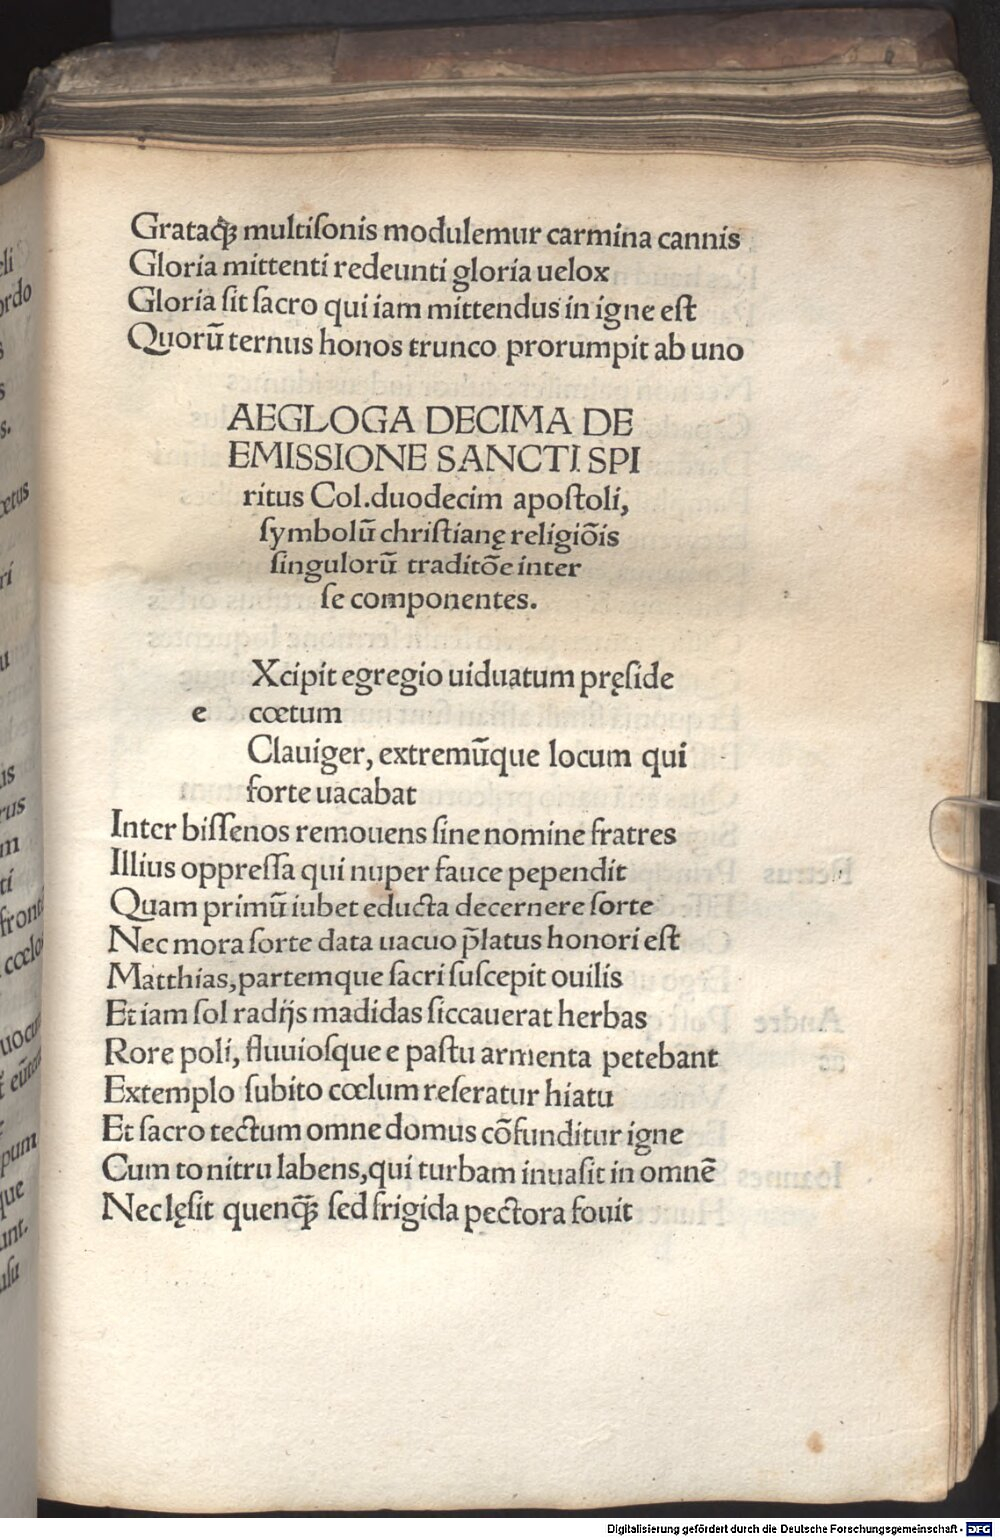 Grataqꝫ multiſonis modulemur carmina cannis
Gloria mittenti redeunti gloria uelox
Gloria ſit ſacro qui iam mittendus in igne eſt
Quorū ternus honos trunco prorumpit ab uno
AEGLOGA DECIMA DE
EMISSIONE SANCTI SPI
ritus Col.duodecim apoſtoli,
ſymbolū chriſtianę religiõis
ſingulorū traditõe inter
ſe componentes.
Xcipit egregio uiduatum pręſide
e cœtum
Clauiger, extremūque locum qui
forte uacabat
Inter biſſenos remouens ſine nomine fratres
Illius oppreſſa qui nuper fauce pependit
Quam primū iubet educta decernere ſorte
Nec mora ſorte data uacuo p̄latus honori eſt
Matthias,partemque ſacri ſuſcepit ouilis
Et iam ſol radijs madidas ſiccauerat herbas
Rore poli, fluuioſque e paſtu armenta petebant
Extemplo ſubito cœlum reſeratur hiatu
Et ſacro tectum omne domus cõfunditur igne
Cum tonitru labens,qui turbam inuaſit in omnē
Nec lęſit quenqꝫ̄ ſed frigida pectora fouit
Digitalisierung gefördert durch die Deutsche Forschungsgemeinschaft - DFG